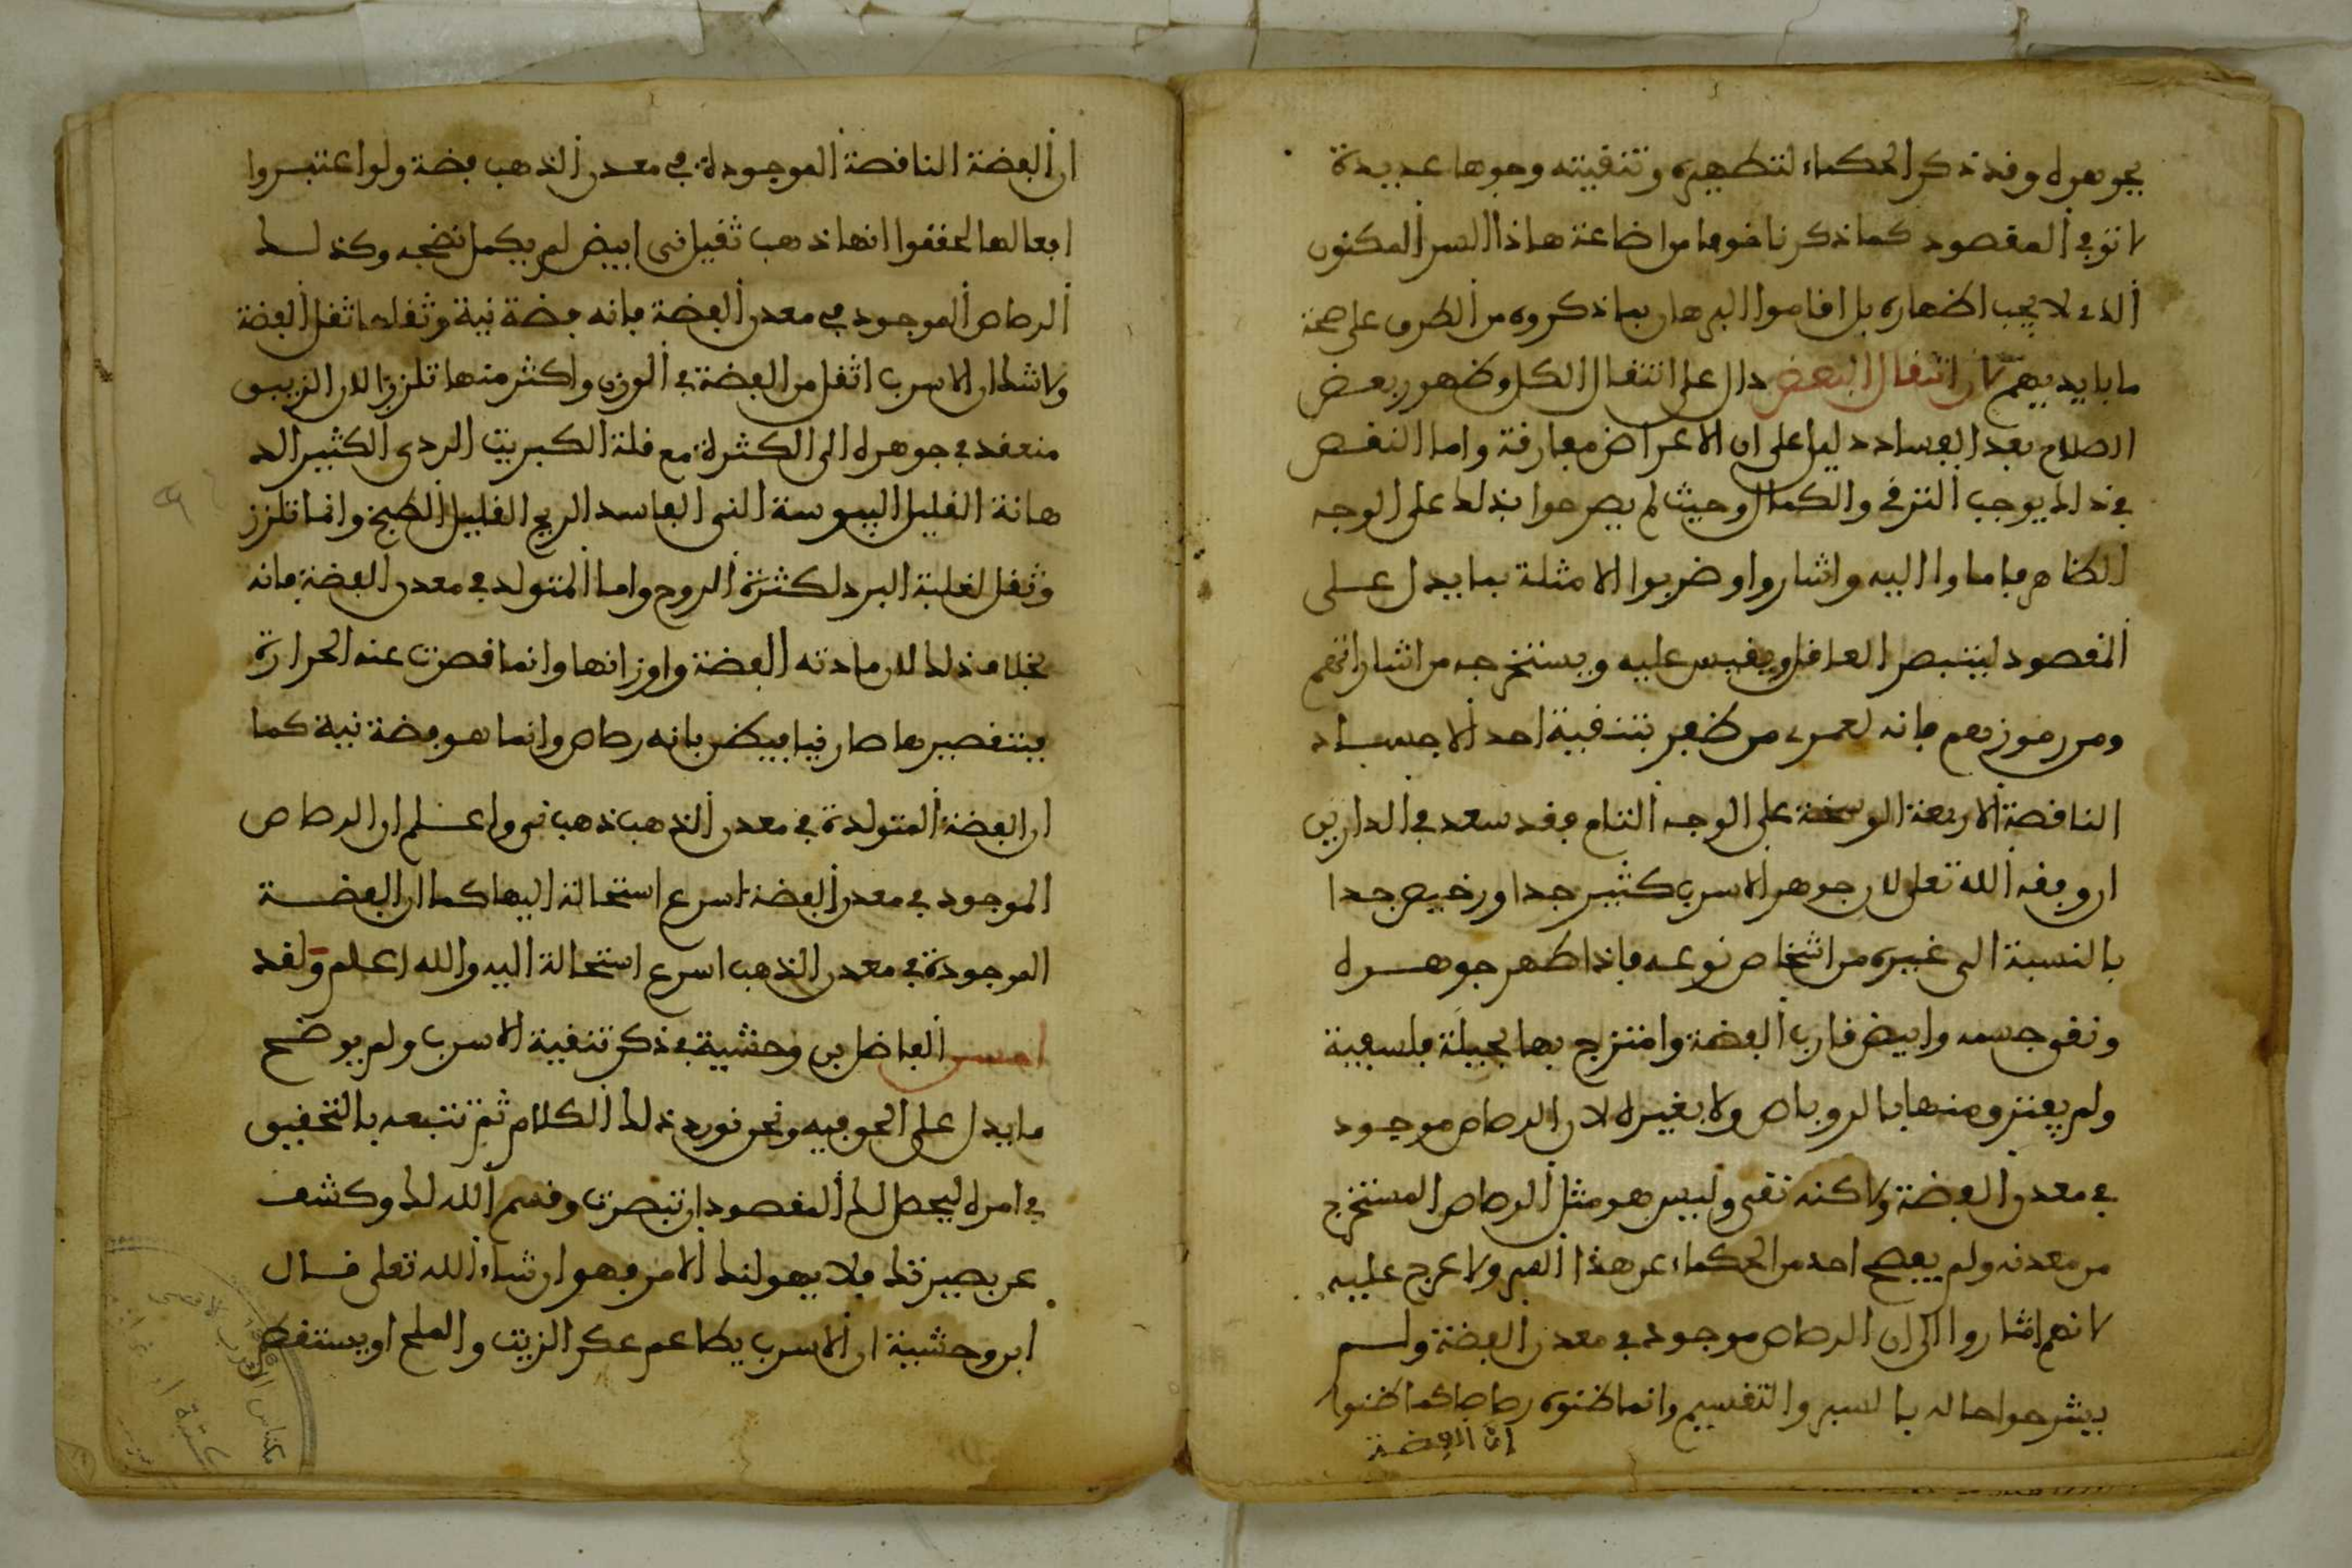 بجوهره وقد ذكر الحكماء لتطهيره وتنقيته وجوها عديدة
لا توفي المقصود كما ذكرنا خوفا من اضاعة هاذا السر المكنون
الذي لا يجب اظهاره بل اقاموا البرهان بما ذكروه من الطرق على صحة
ما بايديهم لان انتقال البعض دال على انتقال الكل وظهور بعض
الصلاح بعد الفساد دليل على ان الاعراض مفارقة واما النقص
في ذلك يوجب الترقي والكمال وحيث لم يصرحوا بذلك على الوجه
الظاهر فاماوا اليه واشاروا وضربوا الامثلة بما يدل على
المقصود ليتبصر العاقل ويقيس عليه ويستخرجه من اشاراتهم
ومن رموزهم فانه لعمري من ظفر بتنقية احد الاجساد
الناقصة الاربعة الوسخة على الوجه التام فقد سعد في الدارين
ان وفقه الله تعلى لان جوهر الاسرب كثير جدا ورخيص جدا
بالنسبة الى غيره من اشخاص نوعه فاذا طهر جوهره
ونقى جسمه وابيض قارب الفضة وامتزج بها بحيلة فلسفية
ولم يفترق منها بالروباص ولا بغيره لان الرصاص موجود
في معدن الفضة ولاكنه نقى وليس هو مثل الرصاص المستخرج
من معدنه ولم يفصح احد من الحكماء عن هذا السر ولا عرج عليه
لانهم اشاروا الى ان الرصاص موجود في معدن الفضة ولم
يشرحوا حاله بالسبر والتقسيم وانما ظنوه رصاصا كما ظنوا
ان الفضة
ان الفضة الناقصة الموجودة في معدن الذهب فضة ولو اعتبروا
افعالها لحققوا انها ذهب ثقيل نى ابيض لم يكمل نضجه وكذلك
الرصاص الموجود في معدن الفضة فانه فضة نية وثقلها ثقل الفضة
ولا شك ان الاسرب اثقل من الفضة في الوزن واكثر منها تلززا لان الزيبق
منعقد في جوهره الى الكثرة مع قلة الكبريت الردى الكثير الد
هانة القليل اليبوسة النى الفاسد الريح القليل الطبخ وانما تلزز
وثقل لغلبة البرد لكثرة الروح واما المتولد في معدن الفضة فانه
بخلاف ذلك لان مادته الفضة واوزانها وانما قصرت عنه الحرارة
فبتقصيرها صار نيا فيظن بانه رصاص وانما هو فضة نية كما
ان الفضة المتولدة في معدن الذهب ذهب نى واعلم ان الرصاص
الموجود في معدن الفضة اسرع استحالة اليها كما ان الفضة
الموجودة في معدن الذهب اسرع استحالة اليه والله اعلم ولقد
احسن الفاضل بن وحشية في ذكر تنقية الاسرب ولم يوضح
ما يدل على الحق فيه ونحن نورد ذلك الكلام ثم نتبعه بالتحقيق
في امره ليحصل لك المقصود ان تبصرت وقسم الله لك وكشف
عن بصيرتك فلا يهولنك الامر فهو ان شاء الله تعلى قال
ابن وحشية ان الاسرب يطاعم عكر الزيت والملح او يستقط